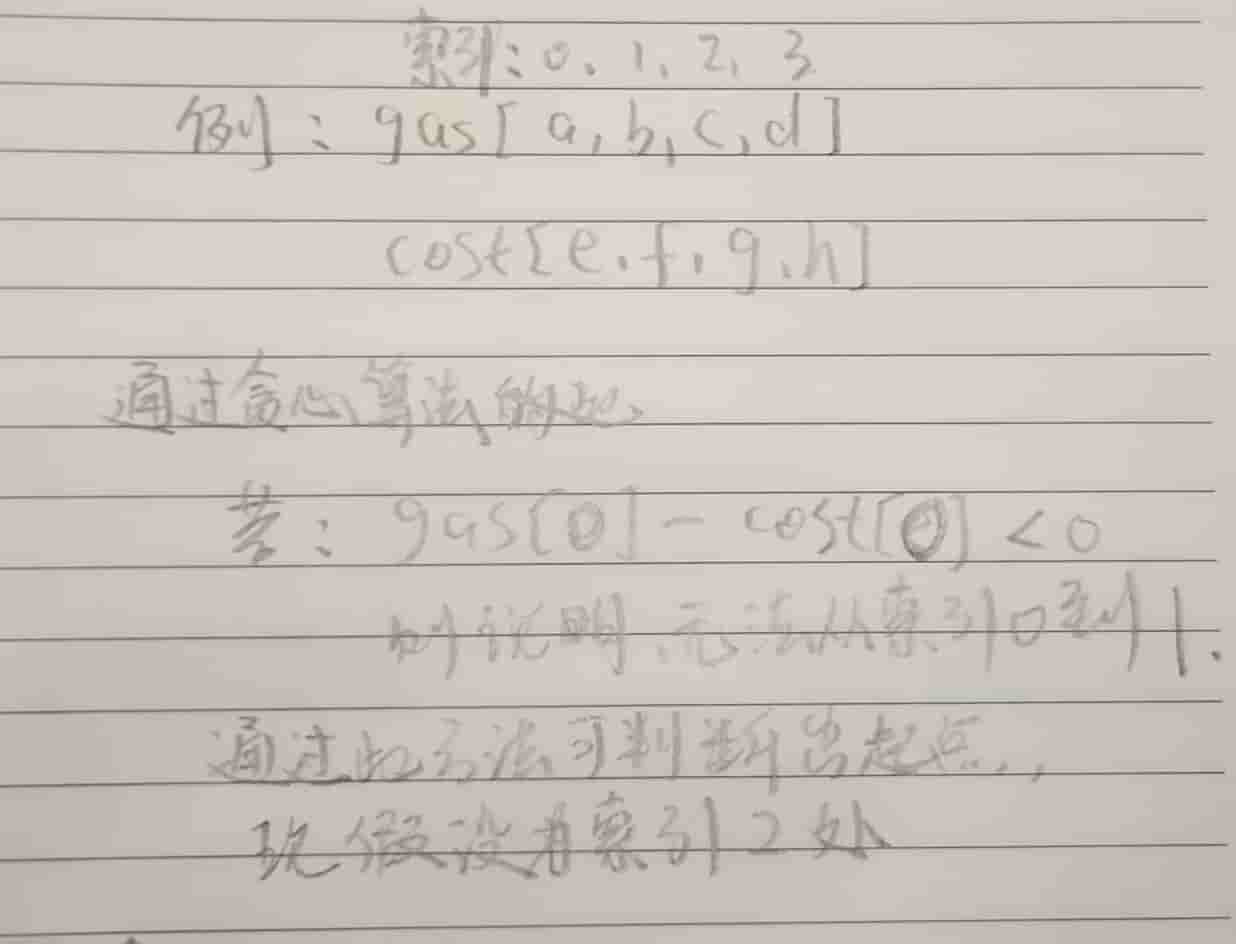 索引:0、1、2、3
例:gas[a,b,c,d]
cost[e.f,g.h]
通过贪心算法的
若:gas[0]-cost[0]<0
则说明,无法从索引0到1.
通过此方法可判断出起点,,
现假设为索引2处